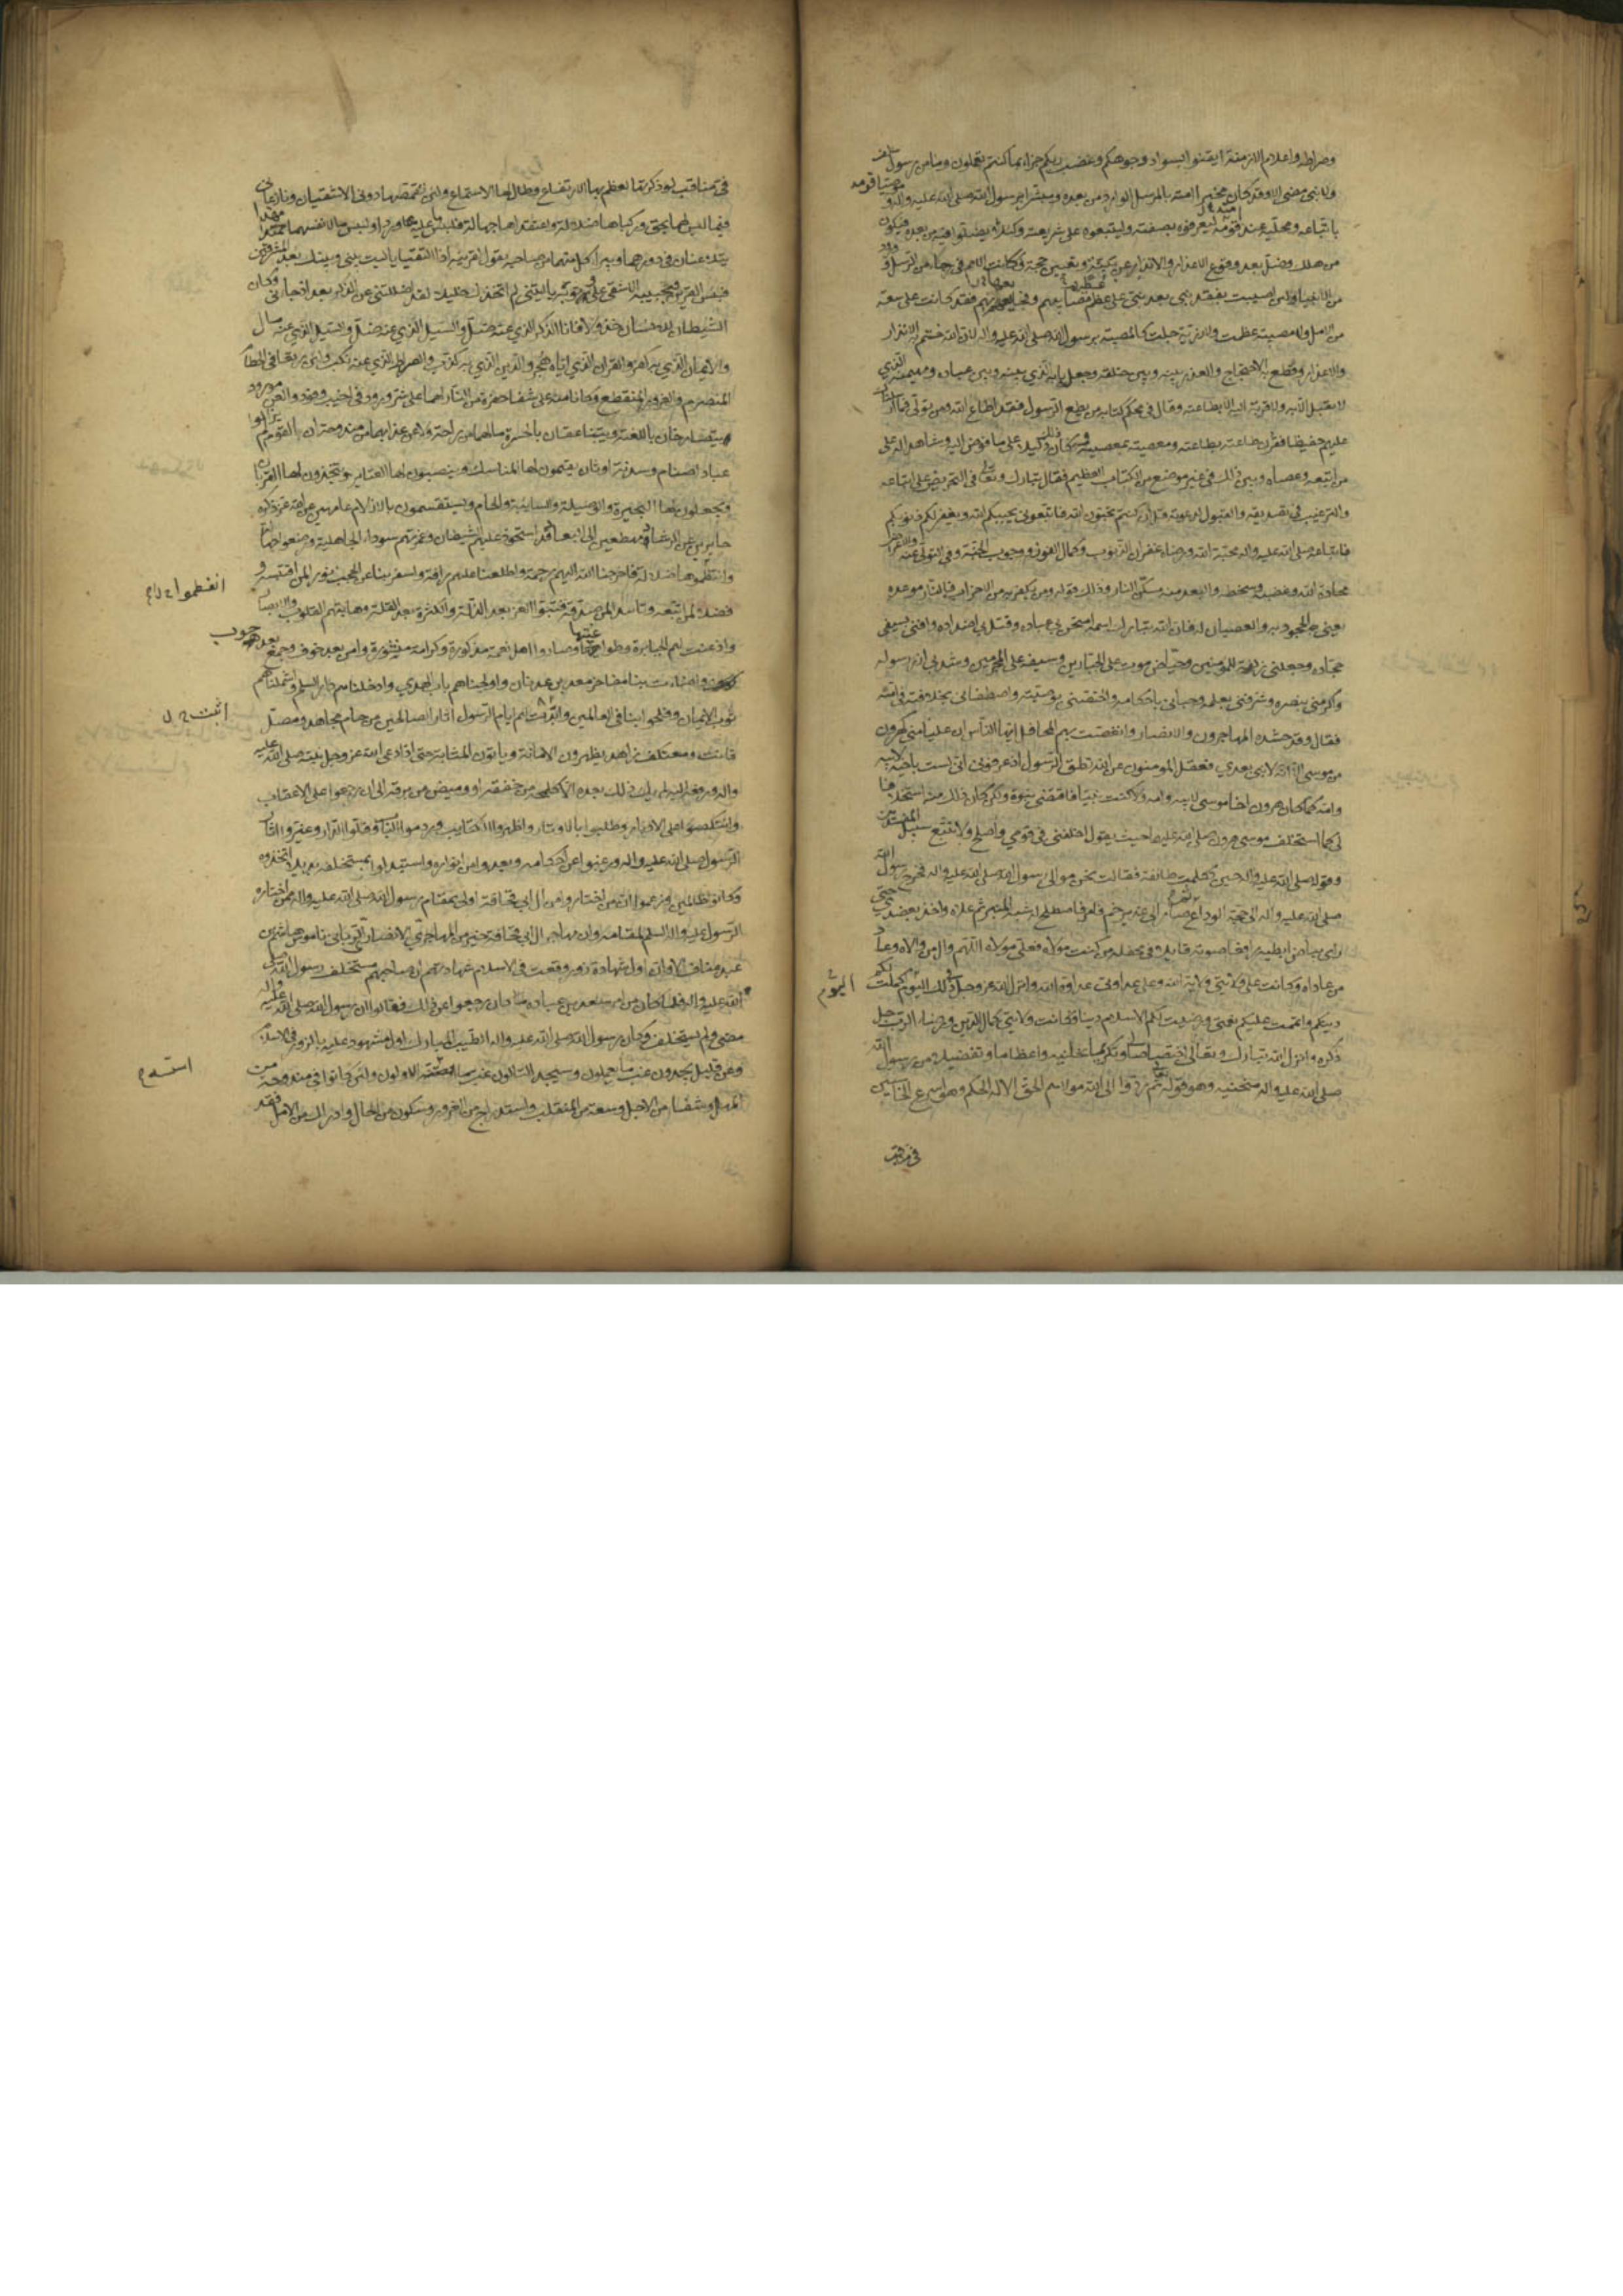 وصراطه واعلام الازمنة ايقنوا بسواد وجوهكم وغضب ربكم جزاء بما كنتم تعملون وما من رسول سلف
ولا نبي مضى الا وقد كان مخبرا امته بالمرسل الوارد من بعده ومبشرا برسول الله صلى الله عليه واله وموصيا قومه
باتباعه ومحليه عند قومه ليعرفوه بصفته وليتبعوه على شريعته ولئلا يضلوا فيه من بعده فيكون
من هلك وضل بعد وقوع الاعذار والانذار عن بينة وتعيين حجة فكانت الامم في رجاء من الرسل وورود
من الانبياء ولئن اصيبت بفقد نبي بعد نبي على عظم مصائبهم وفجائعها بهم فقد كانت على سعة
من الامل ولا مصيبة عظمت ولا رزية جلت كالمصيبة برسول الله صلى الله عليه واله لان الله ختم به الانذار
والاعذار وقطع به الاحتجاج والعذر بينه وبين خلقه وجعله بابه الذي بينه وبين عباده ومهيمنه الذي
لا يقبل الا به ولا قربة اليه الا بطاعته وقال في محكم كتابه من يطع الرسول فقد اطاع الله ومن تولى فما ارسلناك
عليهم حفيظا فقرن طاعته بطاعته ومعصيته بمعصيته فكان ذلك دليلا على ما فوض اليه وشاهدا له على
من اتبعه وعصاه وبين ذلك في غير موضع من الكتاب العظيم فقال تبارك وتعالى في التحريض على اتباعه
والترغيب في تصديقه والقبول لدعوته قل ان كنتم تحبون الله فاتبعوني يحببكم الله ويغفر لكم ذنوبكم
فاتباعه صلى الله عليه واله محبة الله ورضاه غفران الذنوب وكمال الفوز ووجوب الجنة وفي التولي عنه والاعراض
محادة الله وغضبه وسخطه والبعد منه مسكن النار وذلك قوله ومن يكفر به من الاحزاب فالنار موعده
يعني الجحود به والعصيان له فان الله تبارك اسمه امتحن بي عباده وقتل بي اضداده وافنى بسيفي
جحاده وجعلني زلفة للمؤمنين وحياض موت على الجبارين وسيفه على المجرمين وشد بي ازر رسوله
واكرمني بنصره وشرفني بعلمه وحباني باحكامه واختصني بوصيته واصطفاني بخلافته في امته
فقال وقد حشده المهاجرون والانصار وانغصت بهم المحافل ايها الناس ان عليا مني كهرون
من موسى الا انه لا نبي بعدي فعقل المؤمنون عن الله نطق الرسول اذ عرفوني اني لست باخيه لابيه
وامه كما كان هرون اخا موسى لابيه وامه ولا كنت نبيا فاقتضى نبوة ولكن كان ذلك منه استخلافا
لي كما استخلف موسى هرون صلى الله عليهما حيث يقول اخلفني في قومي واصلح ولا تتبع سبيل المفسدين
وقوله صلى الله عليه واله حين تكلمت طائفة فقالت نحن موالي رسول الله صلى الله عليه واله فخرج رسول الله
صلى الله عليه واله الى حجة الوداع ثم صار الى غدير خم فامر فاصلح له شبه المنبر ثم علاه واخذ بعضدي حتى
رئي بياض ابطيه رافعا صوته قايلا في محفله من كنت مولاه فعلي مولاه اللهم وال من والاه وعاد
من عاداه وكانت على ولايتي ولاية الله وعلى عداوتي عداوة الله وانزل الله عز وجل في ذلك اليوم اكملت لكم
اليوم
دينكم واتممت عليكم نعمتي ورضيت لكم الاسلام دينا فكانت ولايتي كمال الدين ورضاء الرب جل
ذكره وانزل الله تبارك وتعالى اختصاصا لي وتكريما نحلنيه واعظاما وتفضيلا من رسول الله
صلى الله عليه واله منحنيه وهو قوله تعالى ثم ردوا الى الله مولاهم الحق الا له الحكم وهو اسرع الحاسبين
في مناقب لو ذكرتها لعظم بها الارتفاع وطال لها الاستماع ولئن تقمصها دوني الاشقيان ونازعاني
فيما ليس لهما بحق وركباها ضلالة واعتقداها جهالة فلبئس ما عليه وردا ولبئس ما لانفسهما مهدا
يتلاعنان في دورهما ويبرأ كل منهما من صاحبه يقول لقرينه اذا التقيا يا ليت بيني وبينك بعد المشرقين
فبئس القرين فيجيبه الاشقى على رثوثة يا ليتني لم اتخذك خليلا لقد اضللتني عن الذكر بعد اذ جاءني وكان
الشيطان للانسان خذولا فانا الذكر الذي عنه ضل والسبيل الذي عنه مال
والايمان الذي به كفر والقران الذي اياه هجر والدين الذي به كذب والصراط الذي عنه نكب ولئن رتعا في الحطام
المنصرم والغرور المنقطع وكانا منه على شفا حفرة من النار لهما على شر ورود في اخيب وفود والعن مورود
يتصارخان باللعنة ويتناعقان بالحسرة ما لهما من راحة ولا عن عذابهما من مندوحة ان القوم لم يزالوا
عباد اصنام وسدنة اوثان يقيمون لها المناسك وينصبون لها العتاير ويتخذون لها القربان
ويجعلون لها البحيرة والوصيلة والسايبة والحام ويستقسمون بالازلام عامهين عن الله عز ذكره
حايرين عن الرشاد مهطعين الى البعاد قد استحوذ عليهم الشيطان وغمرتهم سوداء الجاهلية ورضعوا جهالة
وانفطموها ضلالة فاخرجنا الله اليهم رحمة واطلعنا عليهم رافة واسفر بنا عن الحجب نورا لمن اقتبسه و
انفطموا
فضلا لمن اتبعه وتاييدا لمن صدقه فتبوؤا العز بعد الذلة والكثرة بعد القلة وهابتهم القلوب والابصار
واذعنت لهم الجبابرة وطوايفها وصاروا اهل نعمة مذكورة وكرامة منشورة وامن بعد خوف وجمع بعد حوب
واضاءت بنا مفاخر معد بن عدنان واولجناهم باب الهدى وادخلناهم دار السلم واشملناهم
ثوب الايمان وفلجوا بنا في العالمين وابدت لهم ايام الرسول اثار الصالحين من حام مجاهد ومصل
قانت ومعتكف زاهد يظهرون الامانة وياتون المثابة حتى اذا دعا الله عز وجل نبيه صلى الله عليه
واله ورفعه اليه لم يك ذلك بعده الا كلمحة من خفقة او وميض من برقة الى ان رجعوا على الاعقاب
وانتكصوا على الادبار وطلبوا بالاوتار واظهروا الكتايب وردموا الباب وفلوا الدار وغيروا اثار
الرسول صلى الله عليه واله ورغبوا عن احكامه وبعدوا من انواره واستبدلوا بمستخلفه بديلا اتخذوه
وكانوا ظالمين وزعموا ان من اختاروا من ال ابي قحافة اولى بمقام رسول الله صلى الله عليه واله ممن اختار
الرسول عليه واله السلم لمقامه وان مهاجر ال ابي قحافة خير من المهاجري الانصاري الرباني ناموس هاشم بن
عبد مناف الا وان اول شهادة زور وقعت في الاسلام شهادتهم ان صاحبهم مستخلف رسول الله صلى
الله عليه واله فلما كان من امر سعد بن عبادة ما كان رجعوا عن ذلك فقالوا ان رسول الله صلى الله عليه واله
مضى ولم يستخلف وكان رسول الله صلى الله عليه واله الطيب المبارك اول مشهود عليه بالزور في الاسلام
وعن قليل يجدون غب ما يعملون وسيجد التالون غب ما اسسه الاولون ولئن كانوا في مندوحة من
المهل وشفاء من الاجل وسعة من المنقلب واستدراج من الغرور وسكون من الحال وادراك من الامل فقد